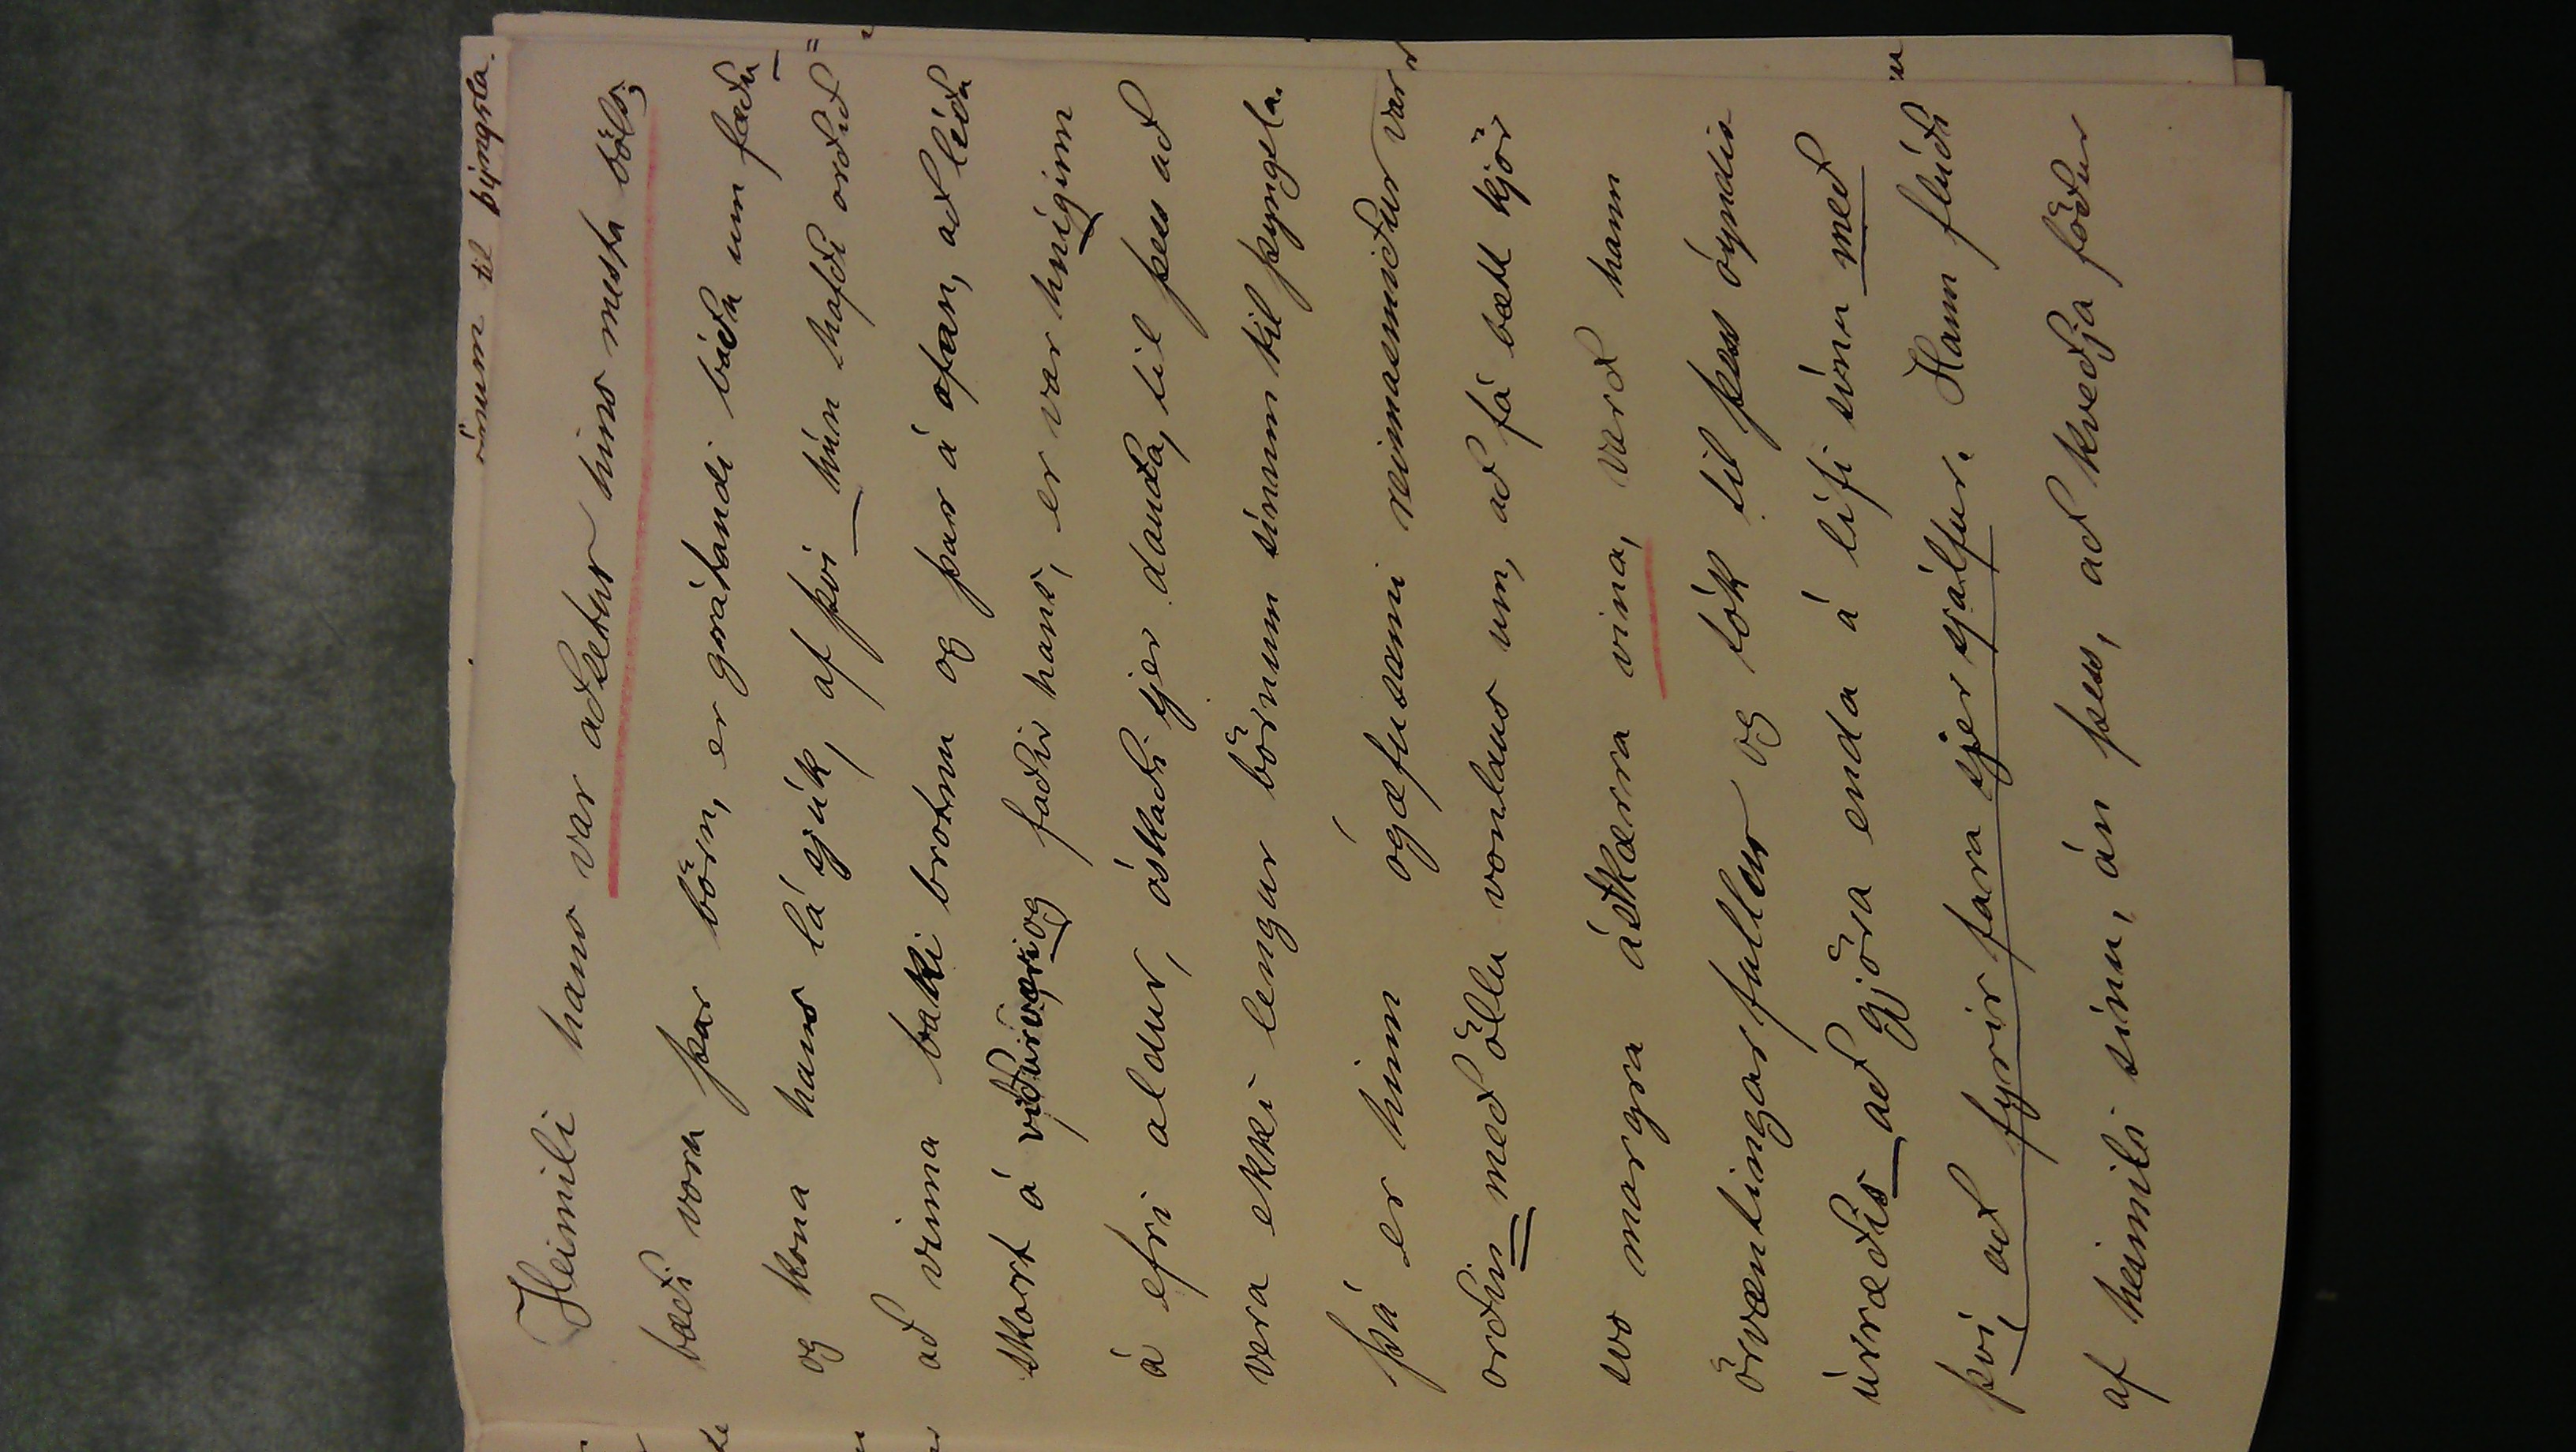 sínum til þýngsla.
Heimili hans var aðsetur hins mesta böls;
bæði voru þar börn, er grátandi báðu um fæðu
og kona hans lá sjúk, af því hún hafði orðið
að vinna baki brotnu og þar á ofan, að líða
skort á viðurværi og faðir hans, er var hniginn
á efri aldur, óskaði sjer dauða, til þess að
vera ekki lengur börnum sínum til þyngsla.
Þá er hinn ógæfusami rennismiður var
orðin með öllu vonlaus um, að fá bætt kjör
svo margra ástkærra vina, varð hann
örvæntingarfullur og tók til þess óyndis
úrræðis að gjöra enda á lífi sínu með
því, að fyrirfara sjer sjálfur. Hann flúði
af heimili sínu, án þess, að kveðja föður